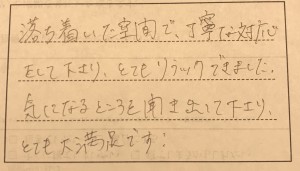 落ち着いた空間で、丁寧な対応
をして下さり、とてもリラックできました。
気になるところを聞き出して下さり、
とても大満足です！